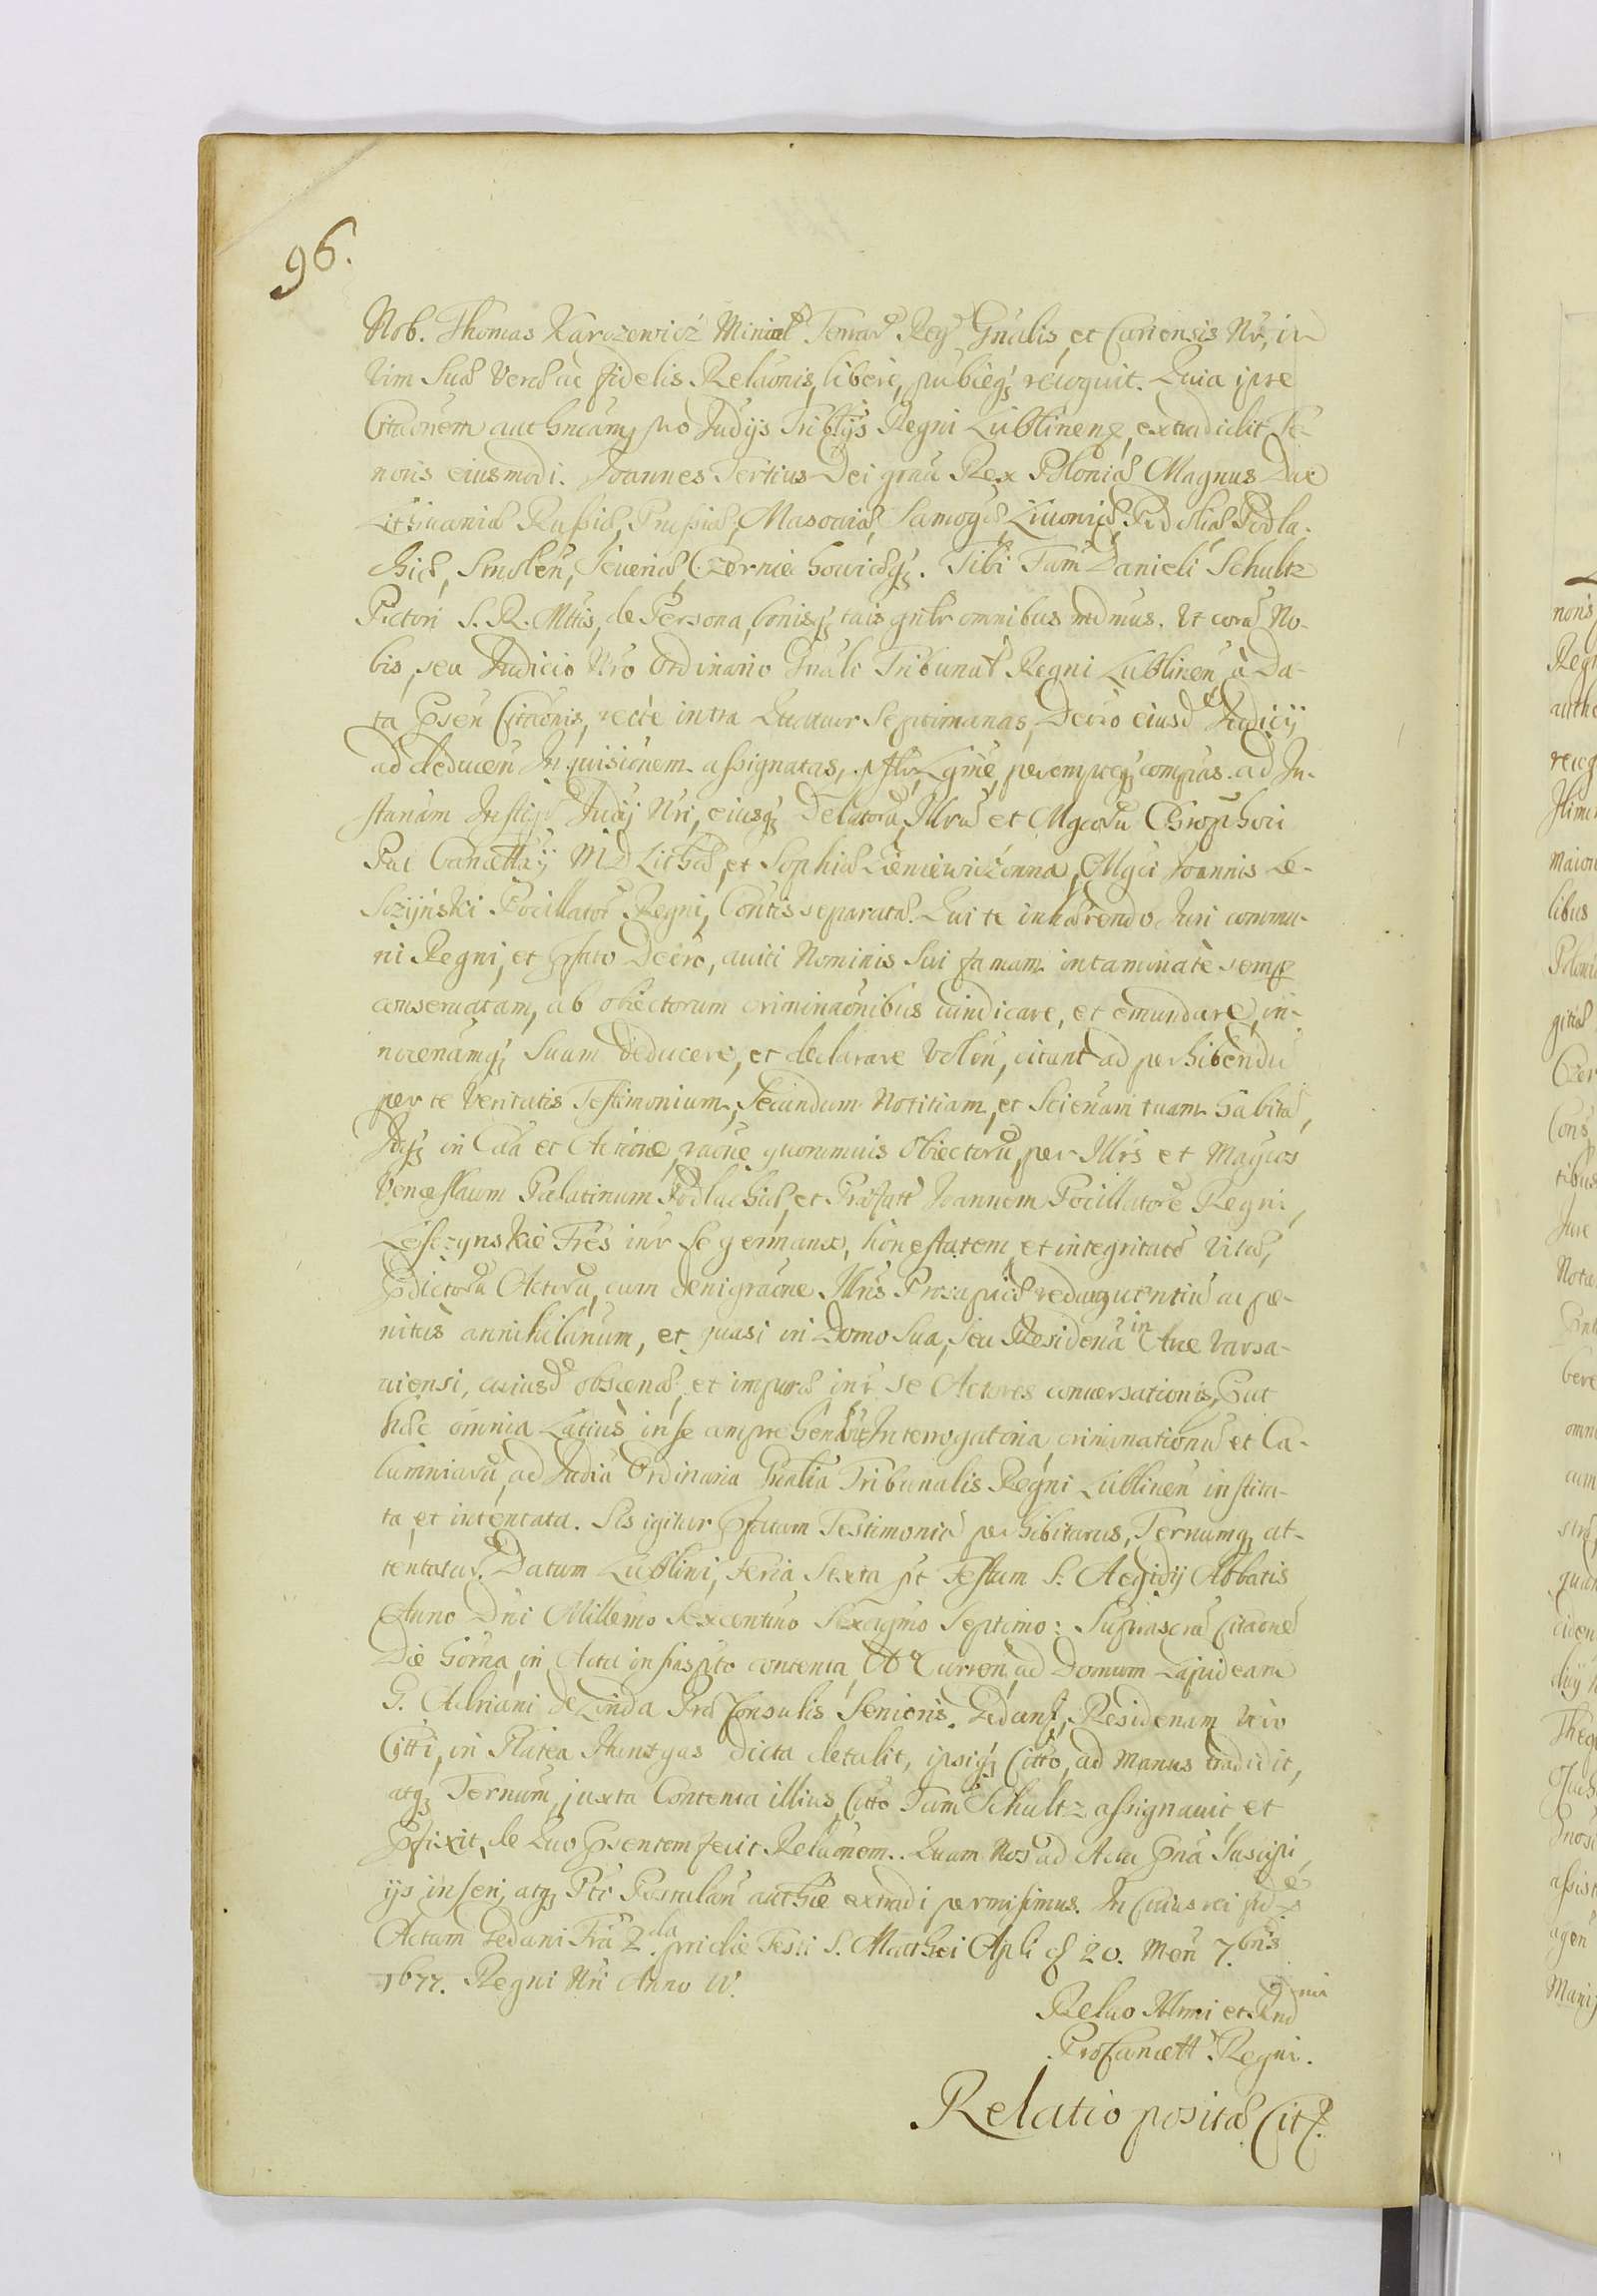 96.
Nob. Thomas Karczewicz Minial Terrar Reg Gnalis, et Curiensis Nr, in
Vim Suæ Veræ ac fidelis Relaonis, libere, pubceq; recognit. Quia ipse
Citaonem authncam, pro Judijs Triblijs Regni Lublinen, extradidit Te-
noris eiusmodi. Joannes Tertius Dei grâ Rex Poloniæ Magnus Dux
Lithuaniæ Russiæ, Prussiæ, Masoviæ, Samogæ, Livoniæ, Podoliæ Podla-
chiæ, Smolen, Severiæ, Czerniechoviæq;. Tibi Fam Danieli Schultz
Pictori S. R. Mttis, de Persona, bonisq; tuis gnlr omnibus mdmus. Ut corã No-
bis, seu Judicio Nro Ordinario Gnali Tribunal Regni Lublinen à Da-
ta Psen Citaonis, recte intra Quatuor Septimanas, Decro eiusd Judicij
ad deducen Inquisionem assignatas, psltr Lgme, perempteq; compas ad In-
stanam Instigs Judij Nri, eiusq; Delatorũ, Illru et Mgcorũ Chrophori
Pac Cancellarij M D Lithæ, et Sophiæ Zieniewiczonna, Mgci Joannis Le-
sczijnski Pocillator Regni, Contis separatæ. Qui te inhærendo Juri commu-
ni Regni, et Pfato Decro, aviti Nominis Sui famam intaminatè semp
conservatam, ab obiectorum criminaonibus vindicare, et emundare, in-
nocenamq; Suam deducere, et declarare Volen, citant ad perhibendũ
per te Veritatis Testimonium, Secundum Notitiam, et Scienam tuam habitã,
Idq; in Caã et Actione, raone quorumvis Obiectorũ, per Illrs et Magcos
Venceslaum Palatinum Podlachiæ, et Præfatt Joannem Pocillatorẽ Regni,
Lesczynskie Fres intr se germanos, honestatem, et integritatẽ Vitæ,
Pdictorũ Actorũ, cum denigraone Illris Prosapiæ redarguentiũ ac pe-
nitùs annihilanum, et quasi in Domo Sua, seu Residena in Arce Varsa-
viensi, cuiusd obscenæ et impuræ intr se Actores conversationis, Put
hæc omnia Latiùs in se comprehendũt Interrogatoria criminationũ et Ca-
lumniarũ, ad Judia Ordinaria Gnalia Tribunalis Regni Lublinen institu-
ta et intentata. Sis igitur Pfatum Testimoniũ perhibiturus, Ternumq; at-
tentatur. Datum Lublini, Feria Sexta pt Festum S. Aegidij Abbatis
Anno Dni Millesmo Sexcentmo Sexagmo Septimo: Suprascrã Citaonẽ
Die horna, in Acta infrasptõ contenta, A Curren, ad Domum Lapideam
G. Adriani de Linda Præ Consulis Senioris Gedanẽ, Residenam Vero
Citti, in Platea Huntgas dicta detulit, ipsiq; Citto, ad manus tradidit,
atq; Ternum, juxta Contenta illius, Citto Fam Schultz assignavit, et
Pfixit, de Quo Psentem fecit Relaonem. Quam Nos ad Acta Pna Suscipi,
ijs inseri, atq; Pti Postulan authce extradi permisimus. In Cuius rei fidẽ
Actum Gedani Fria 2da pridie Festi S. Matthæi Apli ð 20. Men 7bris
1677. Regni Nri Anno IV.
Relao Illmi et Rnd
ProCancell Regni.
Relatio positæ Cit